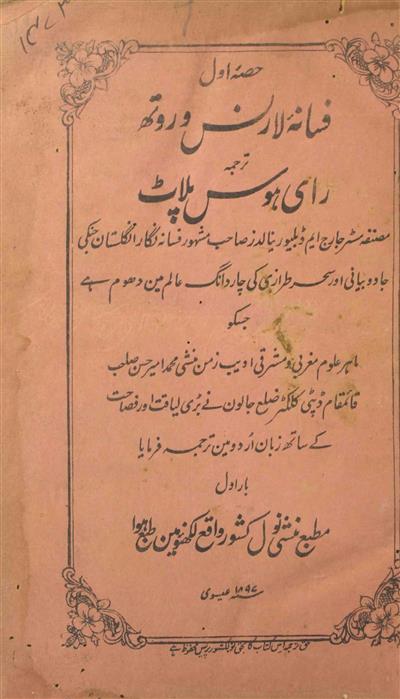 حصہ اول
فسانۂ لارنس و روتھ
ترجمہ
رای ہوس پلاٹ
مصنفہ مسٹر جارج ایم ڈبلیو رینالڈز صاحب مشہور فسانہ نگار انگلستان جنکی
جادو بیانی اور سحر طرازی کی چار دانگ عالم مین دھوم ہے
جسکو
ماہر علوم مغربی و مشرقی ادیب زمن منشی محمد امیر حسن صاحب
قائمقام ڈپٹی کلکٹر ضلع جالون نے بڑی لیاقت اور فصاحت
کے ساتھ زبان اُردو مین ترجمہ فرمایا
بار اول
مطبع منشی نول کشور واقع لکھنؤ مین طبع ہوا
سنہ ۱۸۹۷ عیسوی
حق ترجمہ اس کتاب کا بحق نولکشور پریس محفوظ ہے